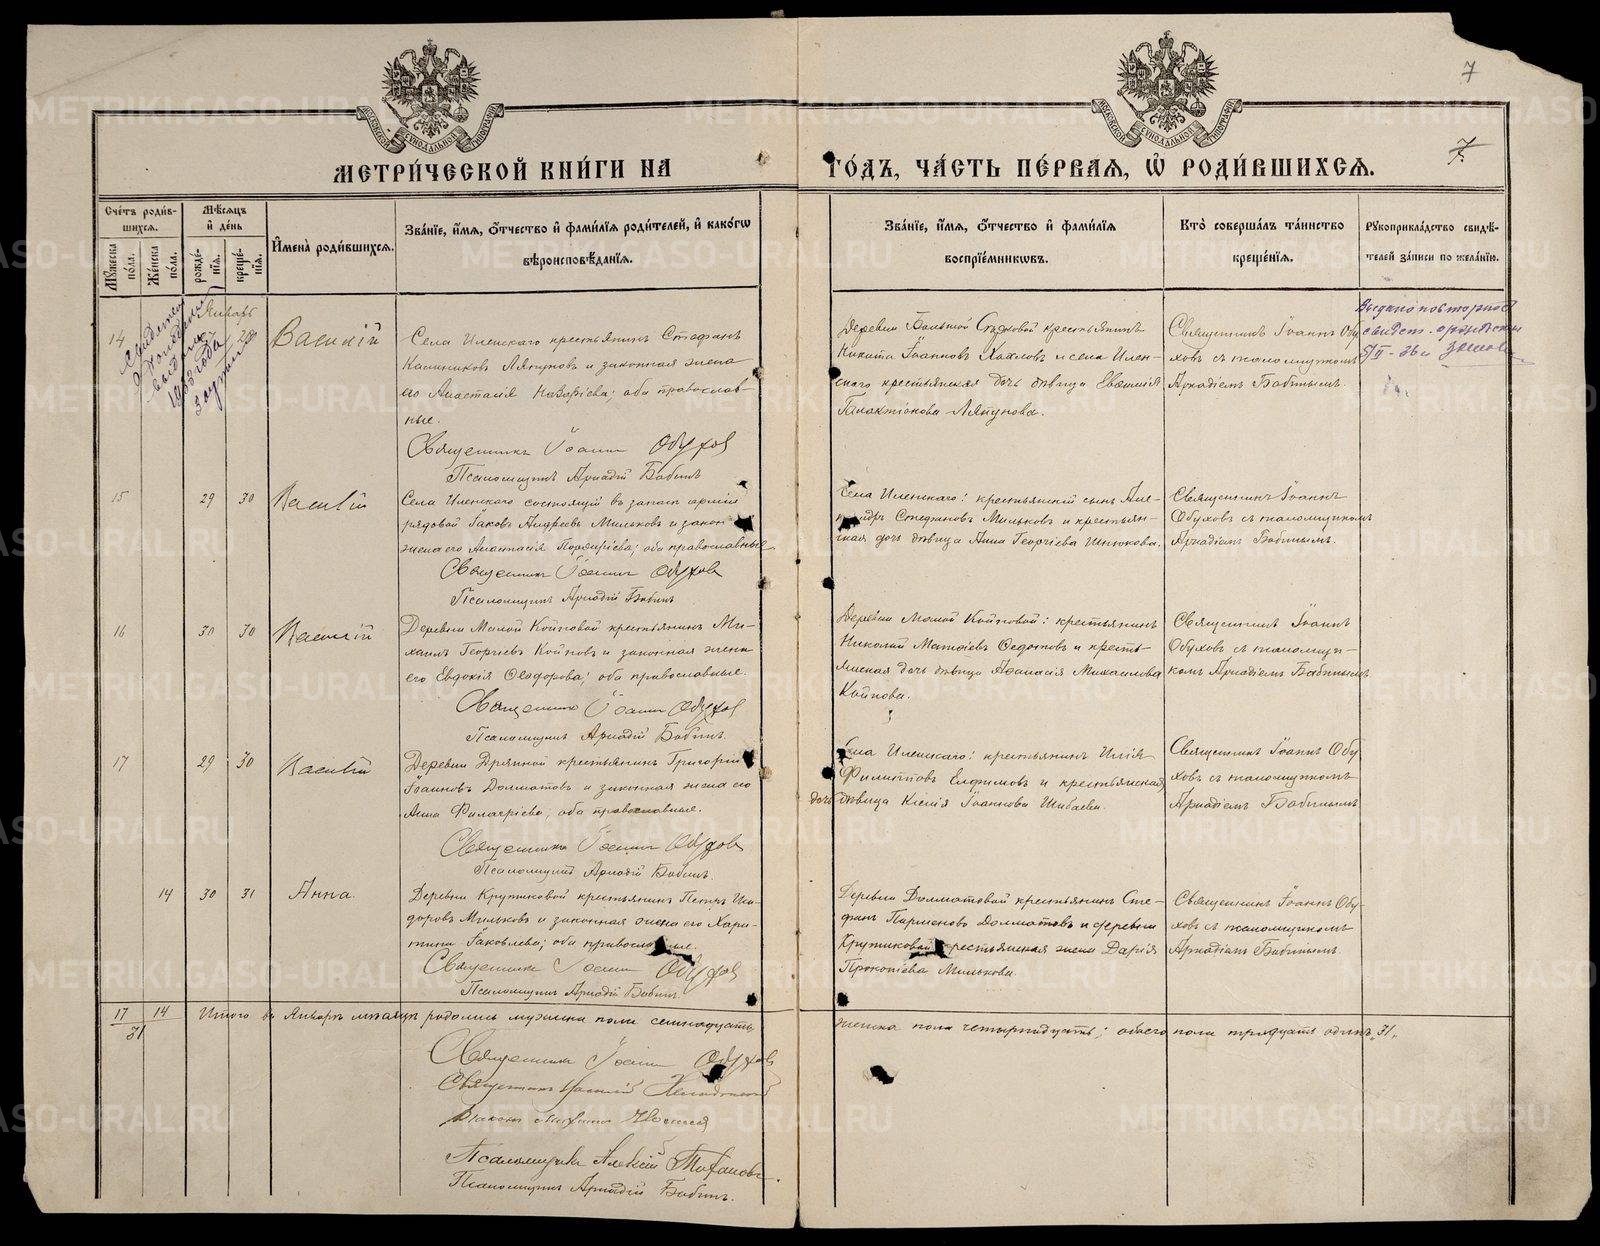 7
7
МЕТРИ́ЧЕСКОЙ КНИ́ГИ НА ГО́ДЪ, ЧА́СТЬ ПЕ́РВАЯ, Ѽ РОДИ́ВШИХСЯ.
МОСКОВСКОЙ СѴНОДАЛЬНОЙ ТИПОГРАФІИ
МОСКОВСКОЙ СѴНОДАЛЬНОЙ ТИПОГРАФІИ
Сче́тъ роди́в-
шихся.
Мꙋ́жеска по́ла.
Же́нска по́ла.
Мѣ́сяцъ
и҆ де́нь
рожде́-
нїя.
креще́-
нїя.
И҆мена̀ роди́вшихся.
Зва́нїе, и҆́мя, ѻ҆́тчество и҆ фами́лїя роди́телей, и҆ како́гѡ
вѣроисповѣ́данїя.
Зва́нїе, и҆́мя, ѻ҆́тчество и҆ фами́лїя
воспрїе́мникѡвъ.
Кто̀ соверша́лъ та́инство
креще́нїя.
Рꙋкоприкла́дство свидѣ́-
телей за́писи по жела́нїю.
Январь
14
28
Василій
Села Иленскаго крестьянинъ Стефанъ
Ляпуновъ и законная жена
его Анастасія Назаріева; оба православ-
ные.
Священникъ Іоаннъ Обуховъ
Псаломщикъ Аркадій Бабинъ
крестьянинъ
Никита Іоанновъ и села Илен-
скаго крестьянская дочь дѣвица Евѳимія
Галактіонова Ляпунова.
Священникъ Іоаннъ Обу-
ховъ съ псаломщикомъ
Аркадіемъ Бабинымъ.
Выдано повторное
свидет.
15
29 30
Василій
Села Иленскаго состоящій въ запасѣ арміи
рядовой Іаковъ Андреевъ Мильковъ и закон
жена его Анастасія Порфиріева; оба православные
Священникъ Іоаннъ Обуховъ
Псаломщикъ Аркадій Бабинъ
Села Иленскаго: крестьянскій сынъ Але-
ксандръ Стефановъ Мильковъ и крестьян-
ская дочь дѣвица Анна Георгіева
Священникъ Іоаннъ
Обуховъ съ псаломщикомъ
Аркадіемъ Бабинымъ.
16
30 30
Василій
Деревни Малой Койновой крестьянинъ Ми-
хаилъ Георгіевъ Койновъ и законная жена
его Евдокія Ѳеодорова; оба православные.
Священникъ Іоаннъ Обуховъ
Псаломщикъ Аркадій Бабинъ.
Деревни Малой Койновой: крестьянинъ
Николай Матѳіевъ Федотовъ и кресть-
янская дочь дѣвица Аѳанасія Михаилова
Койнова.
Священникъ Іоаннъ
Обуховъ съ псаломщи-
комъ Аркадіемъ Бабинымъ
17
29 30
Василій
Деревни Дрянной крестьянинъ Григорій
Іоанновъ Долматовъ и законная жена его
Анна Филагріева; оба православные.
Священникъ Іоаннъ Обуховъ
Псаломщикъ Аркадій Бабинъ.
Села Иленскаго: крестьянинъ Илія
Филипповъ Елфимовъ и крестьянская
дочь дѣвица Іоаннова Шибаева.
Священникъ Іоаннъ Обу-
ховъ съ псаломщикомъ
Аркадіемъ Бабинымъ
14
30 31
Анна.
Деревни Крутиковой крестьянинъ Петръ Иси-
доровъ Мильковъ и законная жена его Хари-
тина Іаковлева; оба православные.
Священникъ Іоаннъ Обуховъ
Псаломщикъ Аркадій Бабинъ.
Деревни Долматовой крестьянинъ Сте-
фанъ Парменовъ Долматовъ и деревни
Крутиковой крестьянская жена Дарія
Прокопіева Милькова.
Священникъ Іоаннъ Обу-
ховъ съ псаломщикомъ
Аркадіемъ Бабинымъ.
17 14
31
Итого въ Январѣ мѣсяцѣ родилось мужска пола семнадцать женска пола четырнадцать; обоего пола тридцать одинъ „31„
Священникъ Іоаннъ Обуховъ
Священникъ
Псаломщикъ Алексій
Псаломщикъ Аркадій Бабинъ.
METRIKI.GASO-URAL.RU